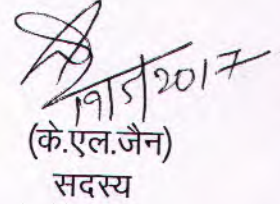 19/5/2017
(के.एल.जैन)
सदस्य